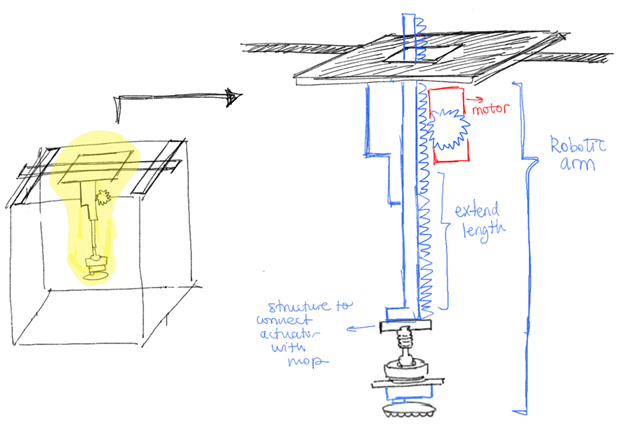 motor
Robotic
arm
extend
length
structure to
connect
actuator
with
mop